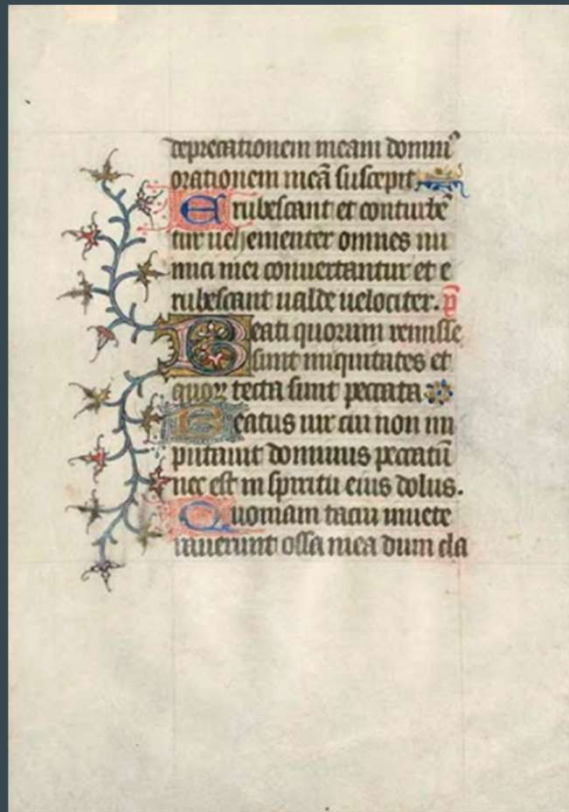 deprecationem meam domin᷒
orationem meā suscepit
Erubescant et conturbē
tur vehementer omnes ini
mici mei convertantur et e
rubescant valde velociter. p̄
Beati quorum remisse
sunt iniquitates et
quoꝝ tecta sunt peccata
Beatus vir cui non im
putavit dominus peccatū
nec est in spiritu eius dolus.
Quoniam tacui invete
raverunt ossa mea dum cla